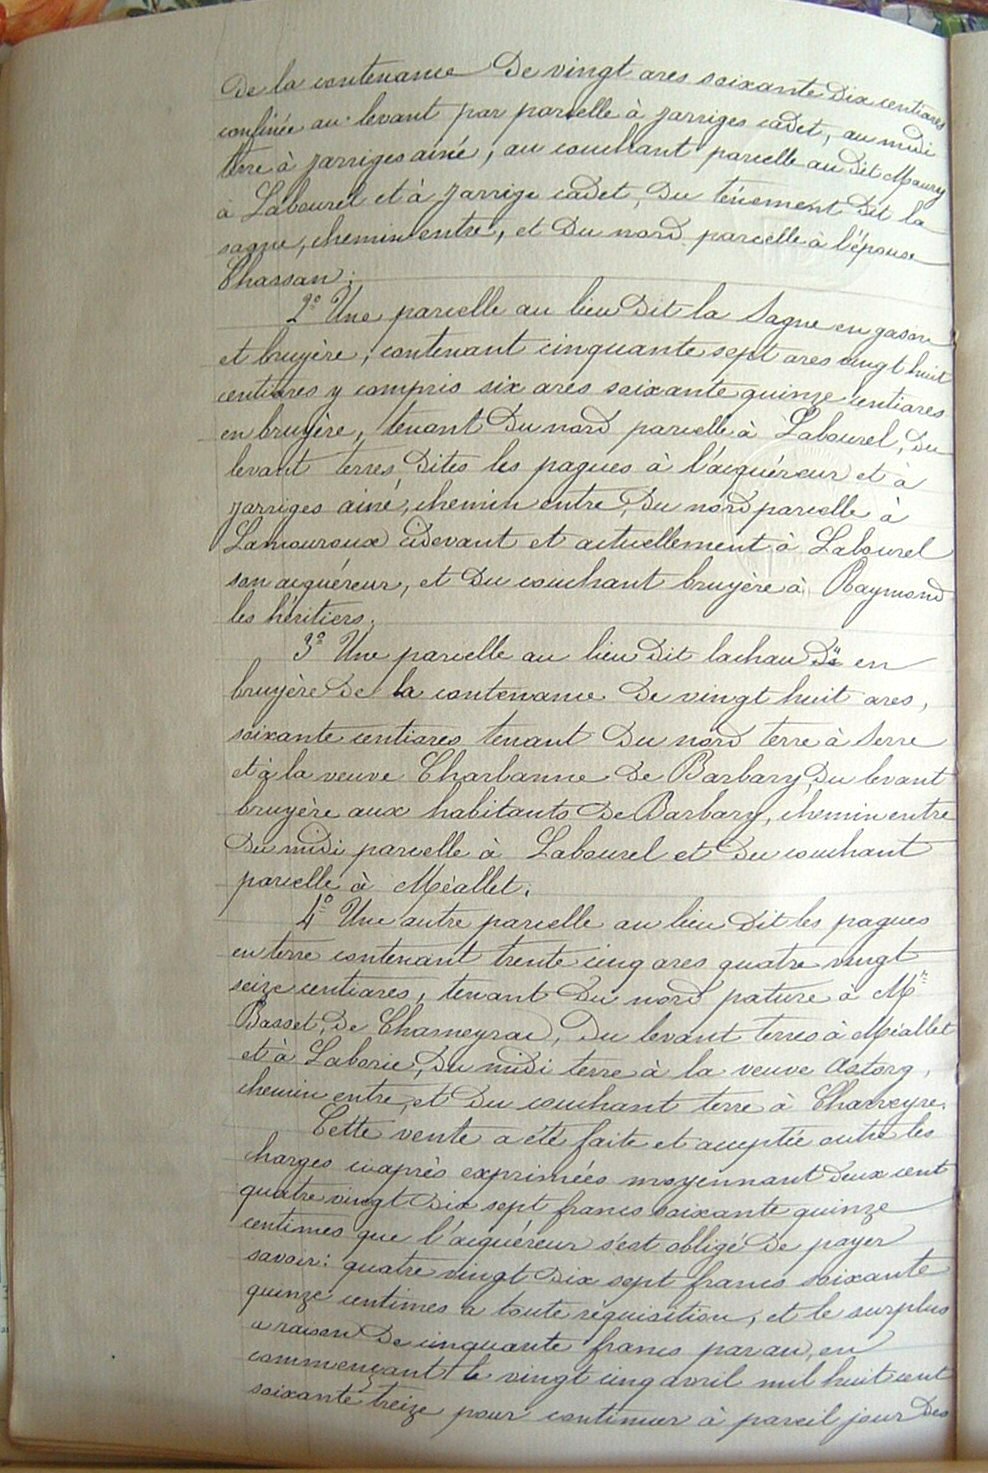 de la contenance de vingt ares soixante dix centiares
confinée au levant par parcelle à Jarriges cadet, au midi
terre à Jarriges ainé, au couchant parcelle au dit Maury
à Labourel et à Jarrige cadet, du ténement dit la
sagne, chemin entre, et du nord parcelle à l'épouse
Chassan;
2º Une parcelle au lieu dit la Sagne en gason
et bruyère, contenant cinquante sept ares vingt huit
centiares y compris six ares soixante quinze centiares
en bruyère, tenant du nord parcelle à Labourel, du
levant terres dites les pagues à l'acquéreur et à
Jarriges ainé, chemin entre, du nord parcelle à
Lamouroux cidevant et actuellement à Labourel
son acquéreur, et du couchant bruyère à Raymond
les héritiers.
3º Une parcelle au lieu dit lachau en
bruyère de la contenance de vingt huit ares,
soixante centiares tenant du nord terre à Serre
et à la veuve Charbanne de Barbary, du levant
bruyère aux habitants de Barbary, chemin entre
du midi parcelle à Labourel et du couchant
parcelle à Méallet.
4º Une autre parcelle au lieu dit les pagues
en terre contenant trente cinq ares quatre vingt
seize centiares, tenant du nord pature à Mr
Basset, de Chameyrac, du levant terres à Méallet
et à Laborie, du midi terre à la veuve Astorg,
chemin entre, et du couchant terre à Charreyre.
Cette vente a été faite et acceptée outre les
charges ciaprès exprimées moyennant deux cent
quatre vingt dix sept francs soixante quinze
centimes que l'acquéreur s'est obligé de payer
savoir: quatre vingt dix sept francs soixante
quinze centimes a toute réquisition, et le surplus
a raison de cinquante francs par an, en
commençant le vingt cinq avril mil huit cent
soixante treize pour continuer à pareil jour des